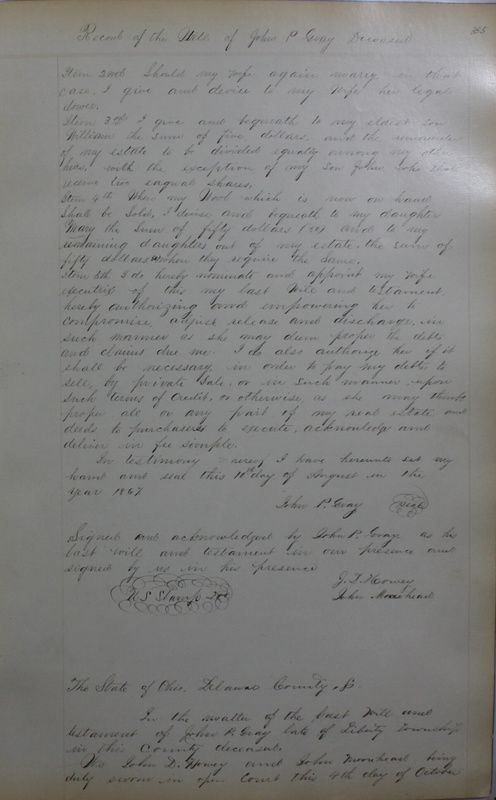 Record of the Will of John P Gray Deceased 355
Item 2nd Should my wife again marry in that
case, I give and device to my Wife her legal
dower.
Item 3rd I give and bequeath to my eldest son
William the sum of five dollars, and the remainder
of my estate to be divided equally among my other
heirs with the exception of my Son John who shall
two eaqual shares,
Item 4th When my Wool which is now on hand
Shall be Sold, I devise and bequeath to my daughter
Mary the Sum of fifty dollars and to my
remaining daughters out of my estate, the sum of
fifty dollars when they require the Same.
Item 5th I do hereby nominate and appoint my wife
executrix of this my last Will and testament,
hereby authorizing and empowering her to
compromise, adjust release and discharge, in
such manner as she may deem proper the debts
and claims due me. I do also authorize her if it
shall be necessary in order to pay my debts to
sell, by private Sale, or in Such manner upon
Such terms of Credit, or otherwise as she may think
proper all or any part of my real estate and
deeds to purchasers to execute, acknowledge and
deliver in fee simple.
In testimony I have hereunto set my
hand and seal this 10th day of August in the
Year 1867
John P. Gray seal
Signed and acknowledged by John P. Gray as his
last will and testament in our presence and
signed by us in his presence
J. D. Howey
U S Stamp John Moorhead
The State of Ohio, Delaware County ss.
In the matter of the last Will and
testament of John P. Gray late of Liberty Township
in this County deceased.
We John D. Howey and John Moorhead being
duly sworn in open Court this 4th day of October